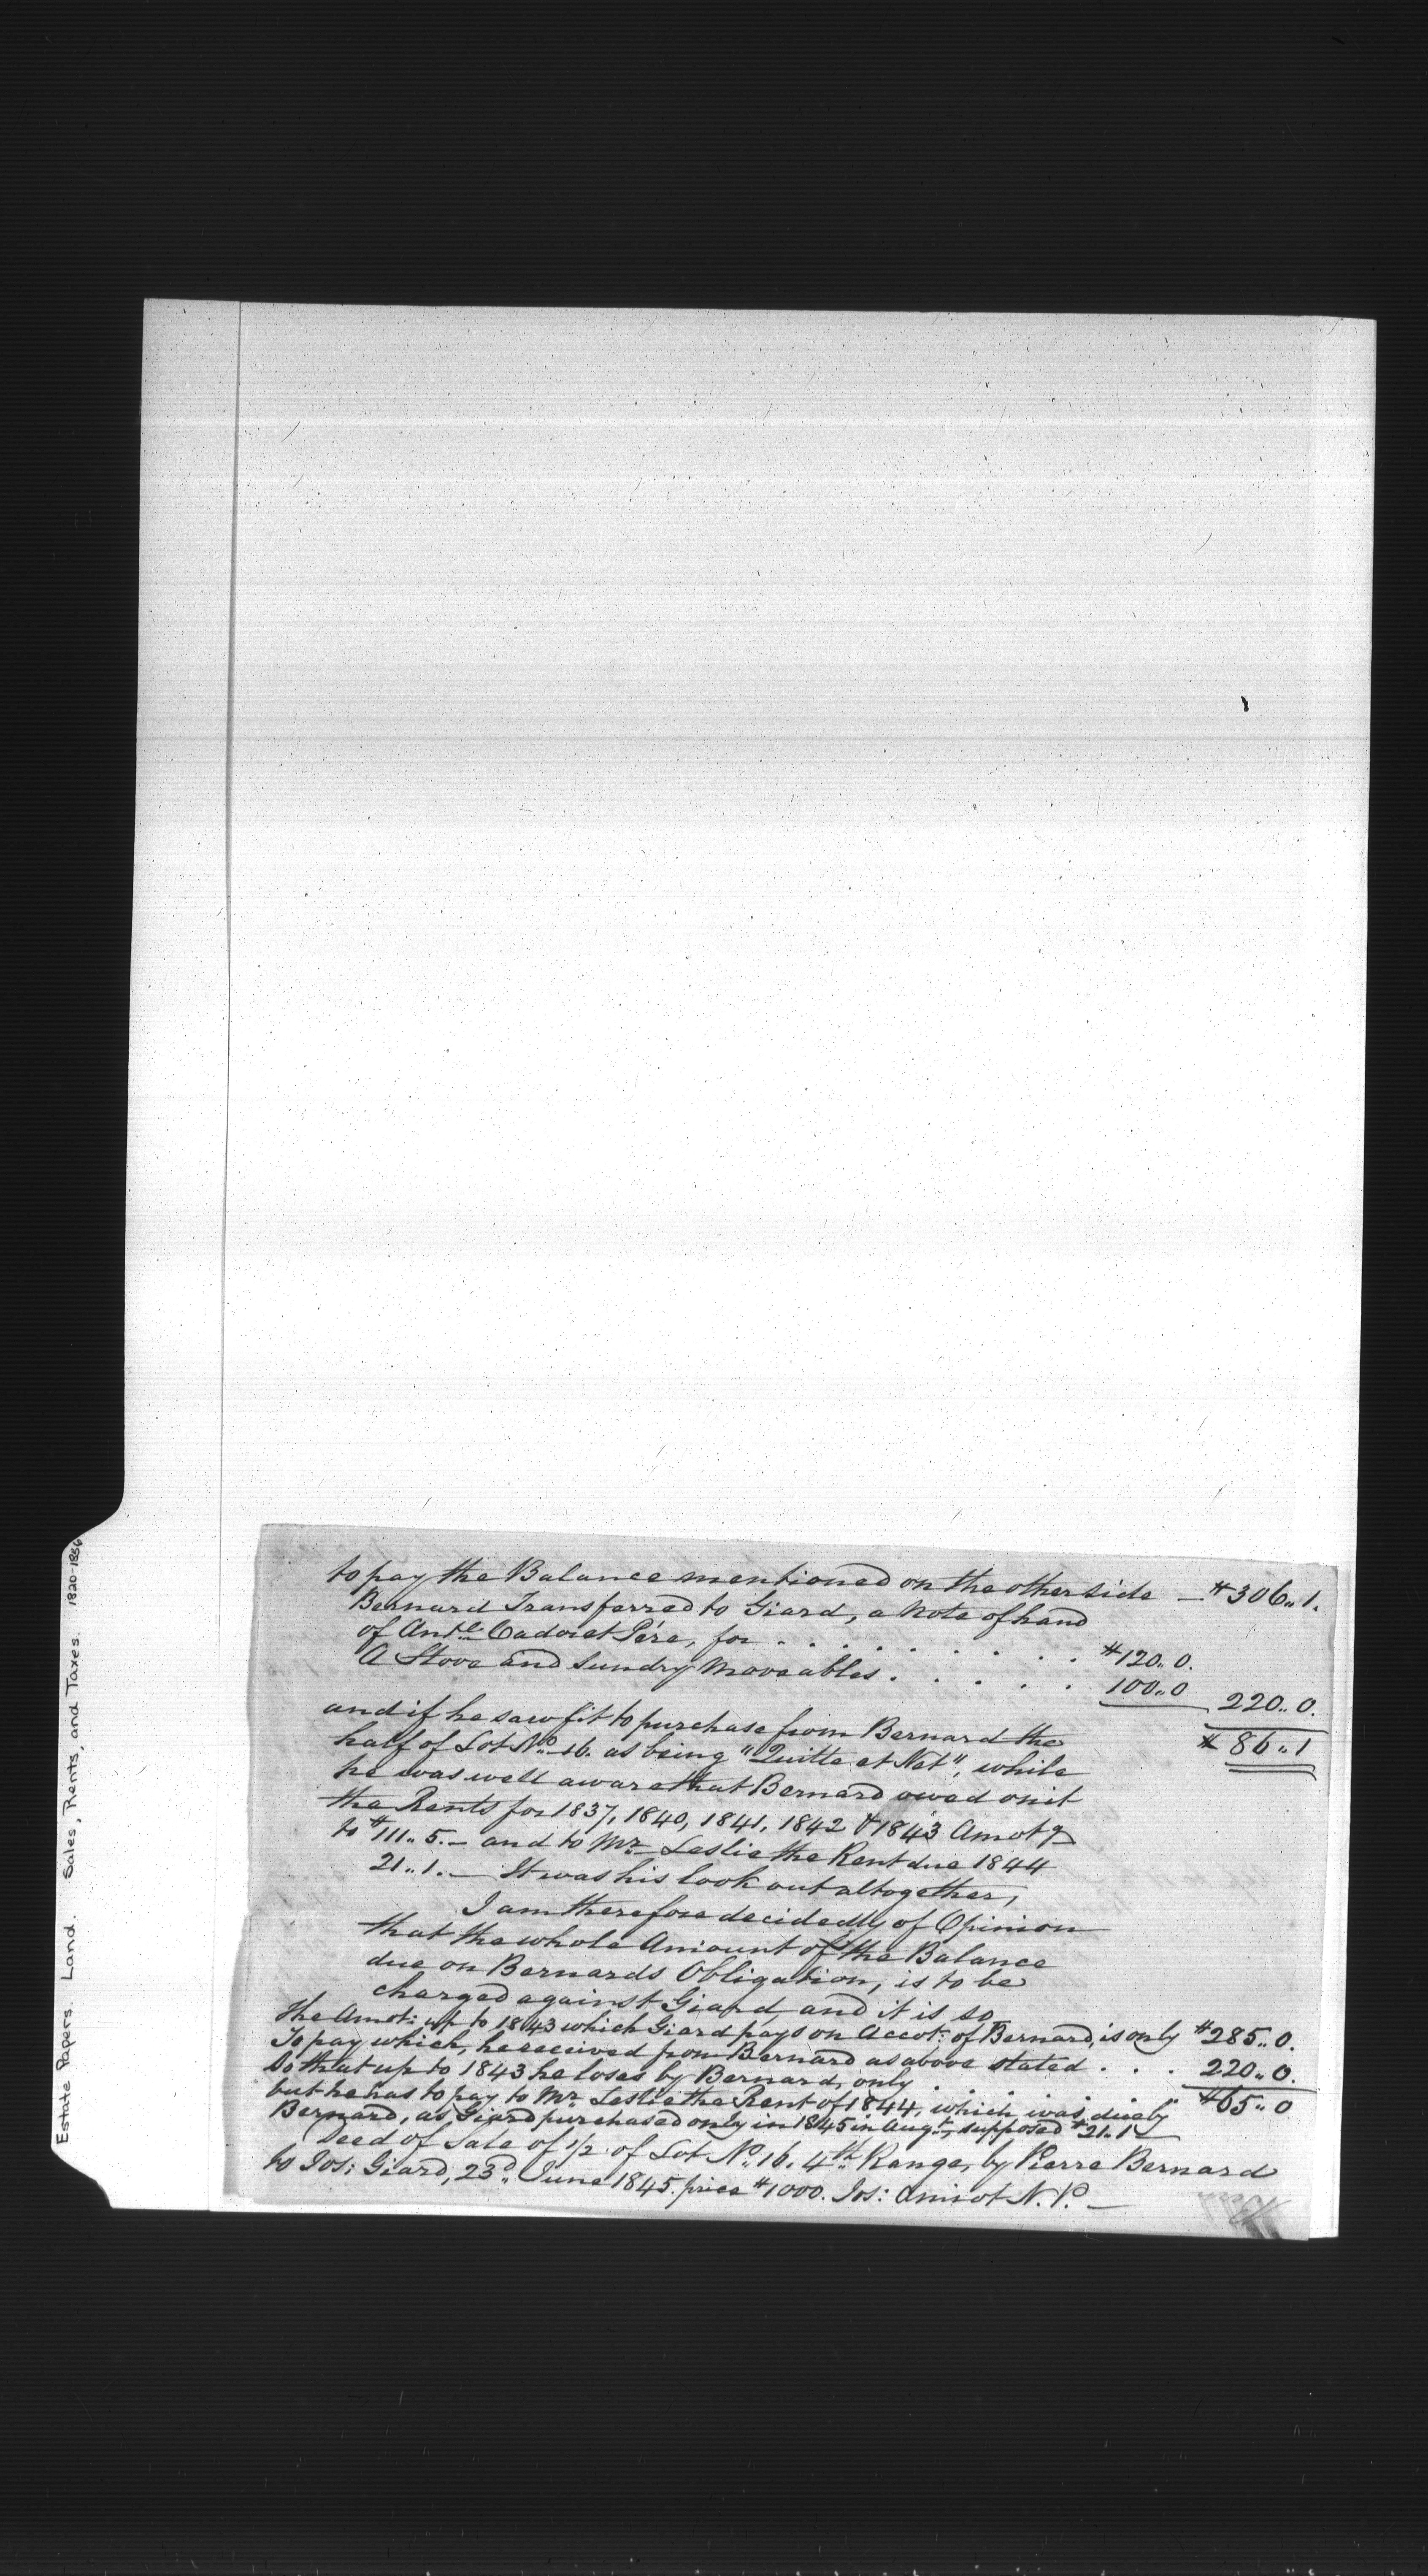 to pay the Balance mentioned on the other side — # 306.. 1.
Bernard Transferred to Giard, a Note of hand
of Ant.e Cadoret Pére, for . . . . . . . . #120.. 0.
A Stove and sundry Moveables . . . . . 100.. 0 220.. 0.
# 86.. 1
and if he saw fit to purchase from Bernard the
half of Lot No. 16. as being "Quitte et Net", while
he was well aware that Bernard owed on it
the Rents for 1837, 1840, 1841, 1842 & 1843 Amotg
to # 111.. 5. — and to Mr. Leslie the Rent due 1844
21.. 1. — It was his look out altogether,
I am therefore decidedly of Opinion
that the whole Amount of the Balance
due on Bernards Obligation, is to be
charged against Giard, and it is so
The Amot: up to 1843 which Giard pays on Accot: of Bernard, is only # 285.. 0.
To pay which, he received from Bernard as above stated . . . 220.. 0.
So that up to 1843 he loses by Bernard, only . . . . #65.. 0
but he has to pay to Mr. Leslie the Rent of 1844, which was due by
Bernard, as Giard purchased only in 1845 in Augt., supposed # 21.. 1
Deed of Sale of 1/2 of Lot No. 16. 4th Range, by Pierre Bernard
to Jos: Giard, 23d. June 1845. price # 1000. Jos: Amiot N.P. —
Estate Papers. Land. Sales, Rents, and Taxes. 1820-1836